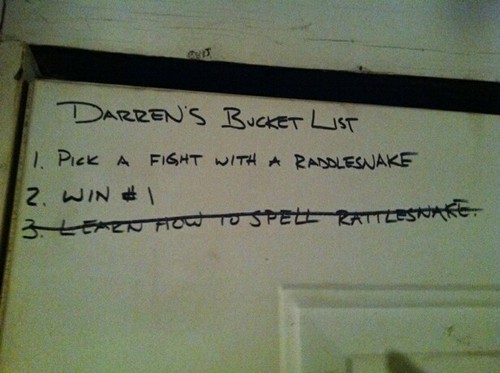 DARREN'S BUCKET LIST
1. PICK A FIGHT WITH A RADDLESNAKE
2. WIN #1
3. LEARN HOW TO SPELL RATTLESNAKE.